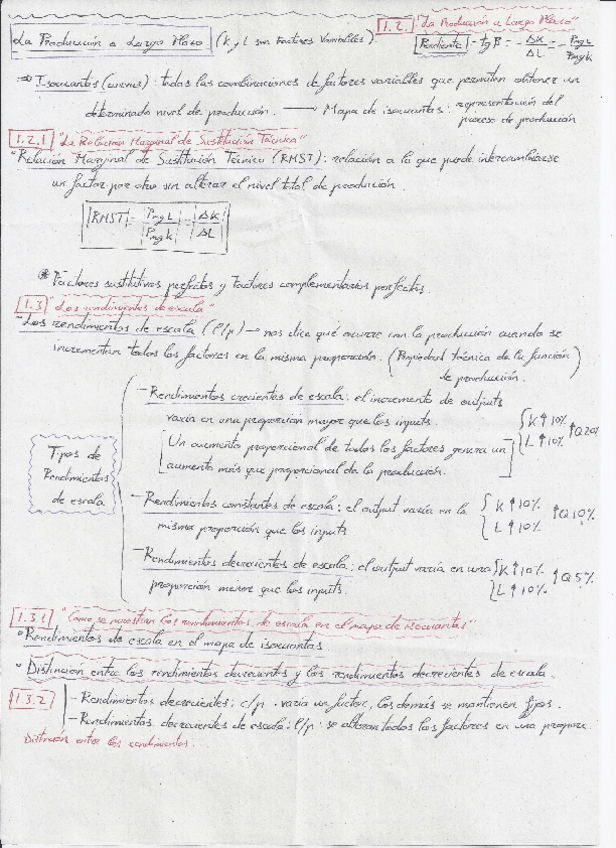 1.2. "La Producción a Largo Plazo"
La Producción a Largo Plazo (K y L son Factores Variables).
Pendiente - tg β = - ΔK/ΔL = - PmgL/PmgK
Isocuantas (curvas): todas las combinaciones de factores variables que permiten obtener un
determinado nivel de producción. → Mapa de isocuantas: representación del
proceso de producción
1.2.1 "La Relación Marginal de Sustitución Técnica"
Relación Marginal de Sustitución Técnica (RMST): relación a la que puede intercambiarse
un factor por otro sin alterar el nivel total de producción.
|RMST| = |PmgL/PmgK| = |ΔK/ΔL|
* Factores sustitutivos perfectos y Factores complementarios perfectos.
1.3 "Los rendimientos de escala"
- Los rendimientos de escala (l/p) → nos dice qué ocurre con la producción cuando se
incrementan todos los factores en la misma proporción. (Propiedad técnica de la función
de producción.)
Tipos de
Rendimientos
de escala
- Rendimientos crecientes de escala: el incremento de outputs
varía en una proporción mayor que los inputs.
[Un aumento proporcional de todos los factores genera un
aumento más que proporcional de la producción.]
{K ↑ 10%
L ↑ 10% ↑Q 20%
- Rendimientos constantes de escala: el output varía en la
misma proporción que los inputs
{K ↑ 10%
L ↑ 10% ↑Q 10%
- Rendimientos decrecientes de escala: el output varía en una
proporción menor que los inputs.
{K ↑ 10%
L ↑ 10% ↑Q 5%
1.3.1 "Como se muestran los rendimientos de escala en el mapa de isocuantas"
Rendimientos de escala en el mapa de isocuantas
Distinción entre los rendimientos decrecientes y los rendimientos decrecientes de escala.
1.3.2
- Rendimientos decrecientes: c/p. varía un factor, los demás se mantienen fijos.
- Rendimientos decrecientes de escala: l/p: se alteran todos los factores en una proporc.
Distinción entre los rendimientos.